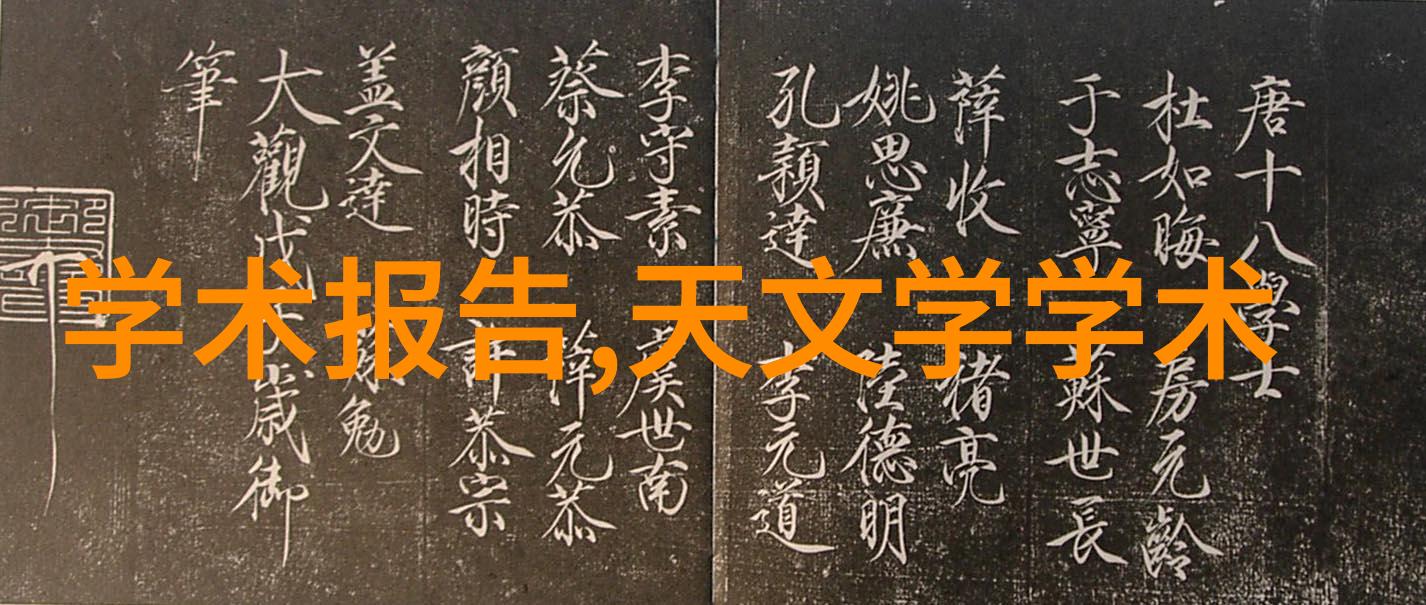 学术报告,天文学学术
唐十八學士
杜如晦 房元齡
于志寧 蘇世長
薛收 褚亮
姚思廉 陸德明
孔穎達 李元道
李守素 虞世南
蔡允恭 薛元恭
顏相時 許恭宗
盖文達 勉
大觀戊子歲御
筆